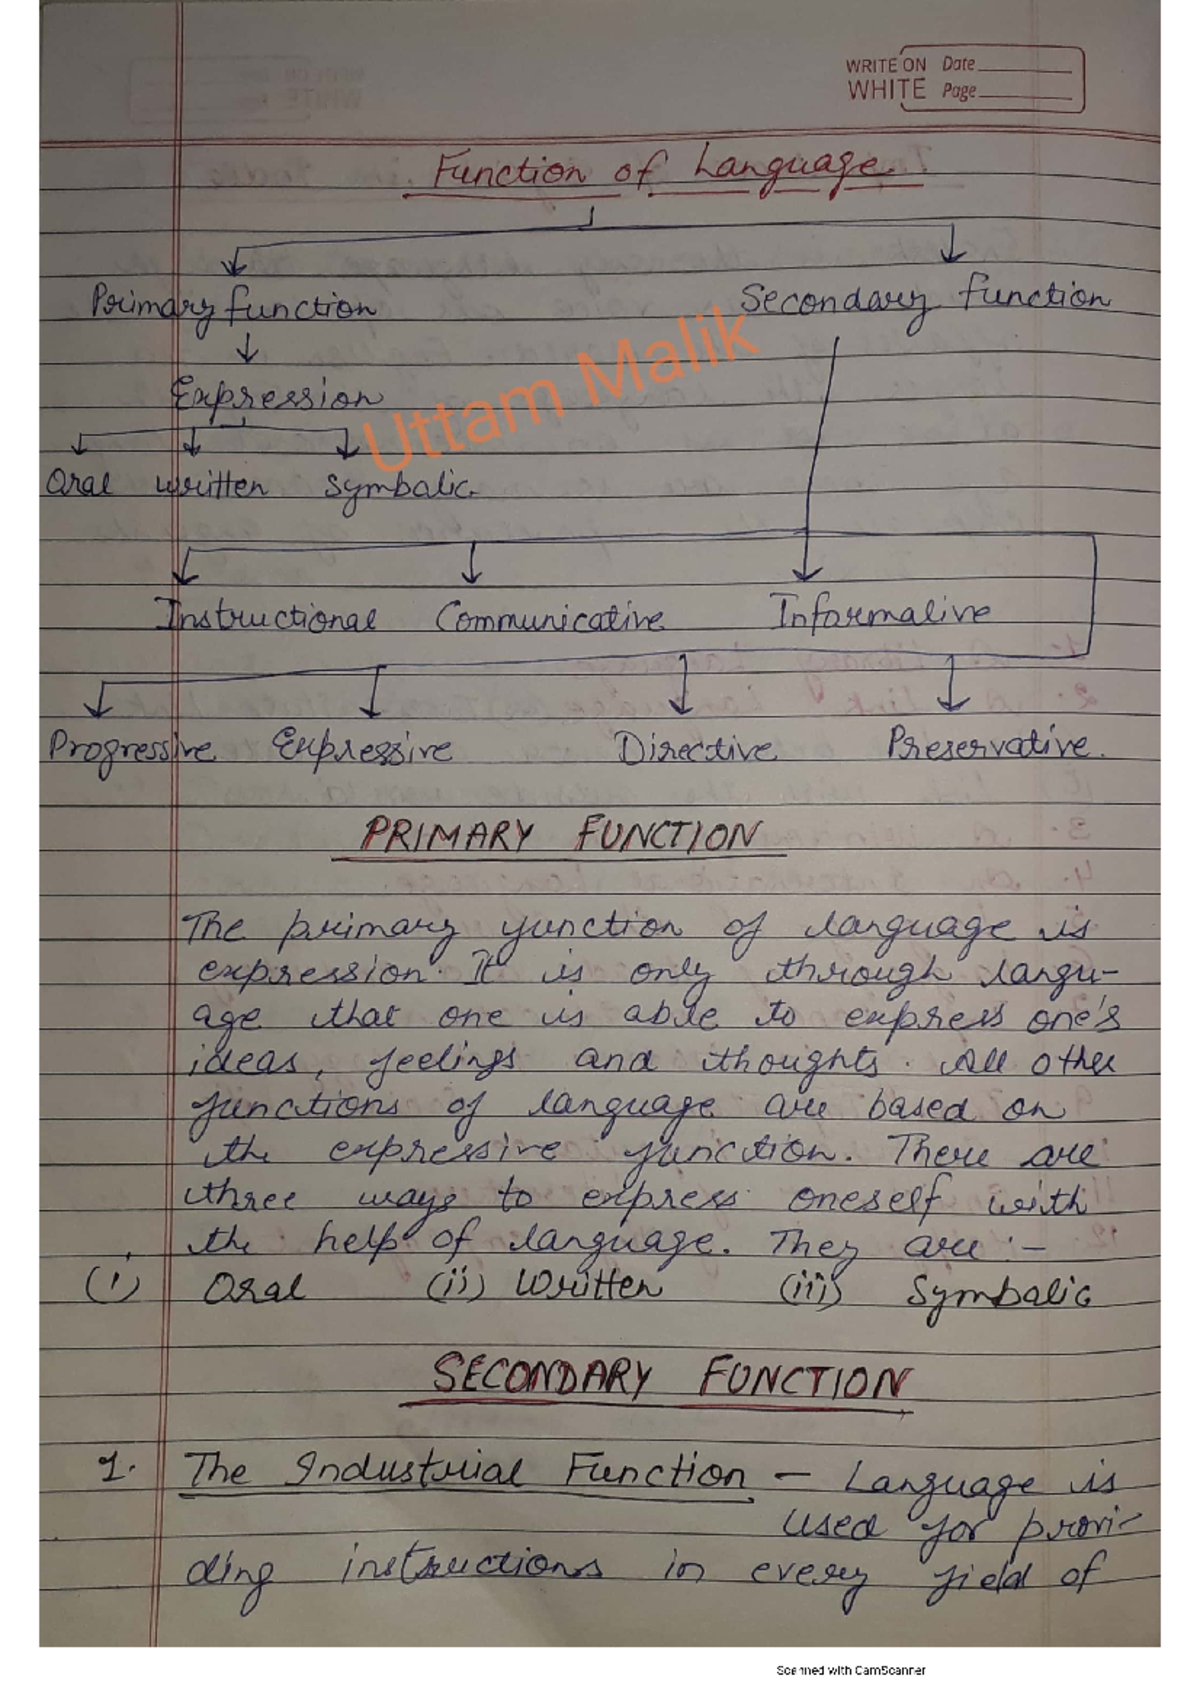 WRITE ON Date
WHITE Page
Function of Language
Primary function Secondary function
Expression
Uttam Malik
Oral written Symbalic.
Instructional Communicative Informalive
Progressive Expressive Directive Preservative.
PRIMARY FUNCTION
The primary function of language is
expression. It is only through langu-
age that one is able to express one's
ideas, feelings and thoughts. All other
functions of language are based on
the expressive function. There are
three ways to express oneself with
the help of language. They are :-
(i) Oral (ii) Written (iii) Symbalic
SECONDARY FUNCTION
1. The Industrial Function - Language is
used for provi-
ding instructions in every field of
Scanned with CamScanner